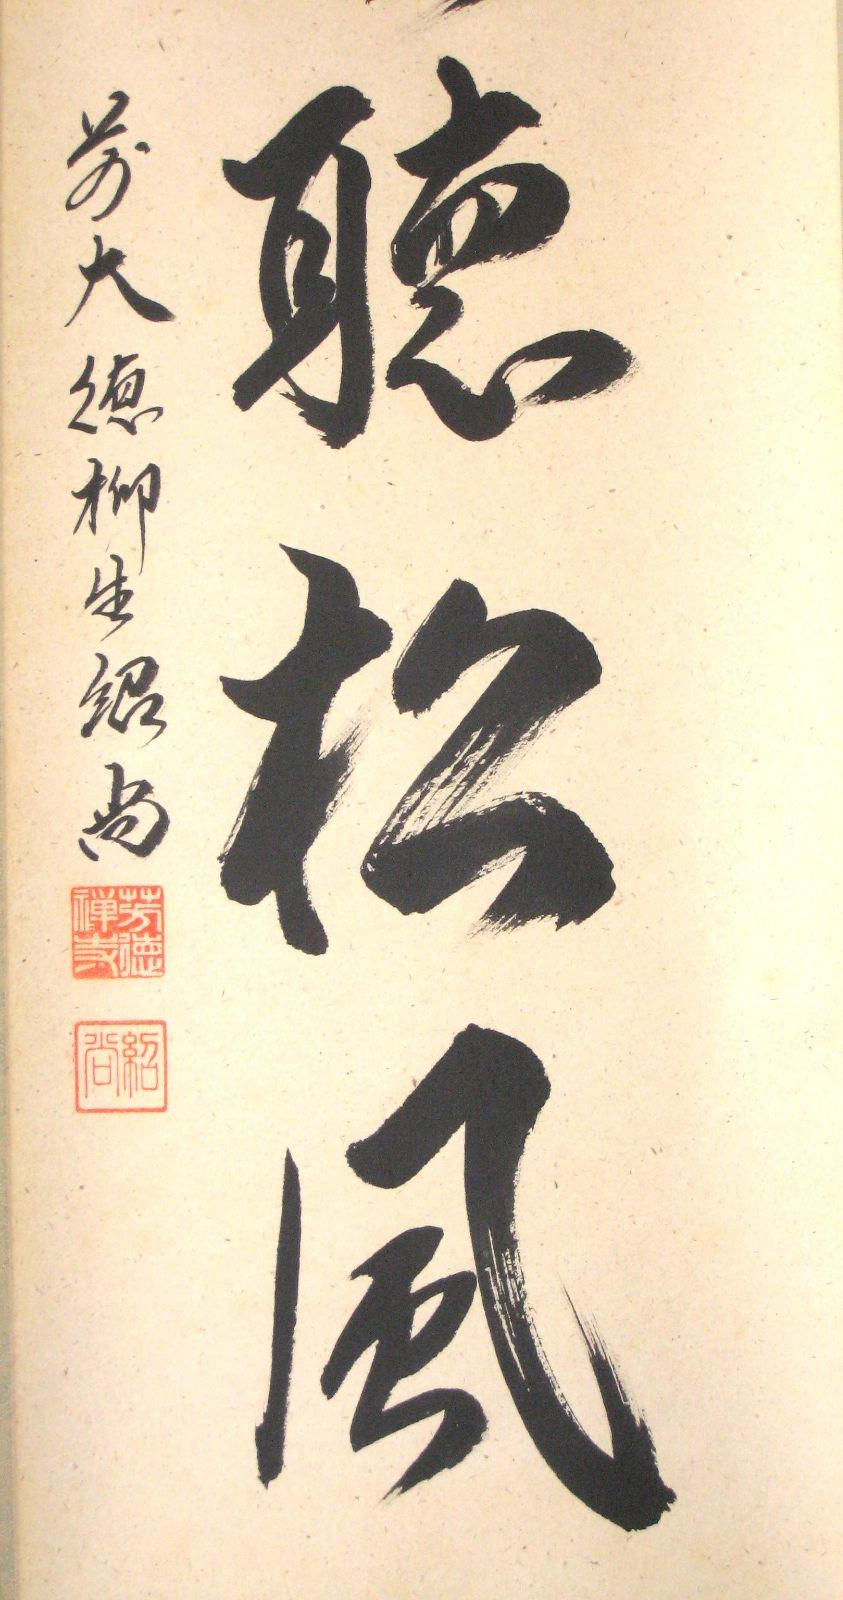 聴松風
前大徳柳生紹尚
芳徳禅寺
紹尚